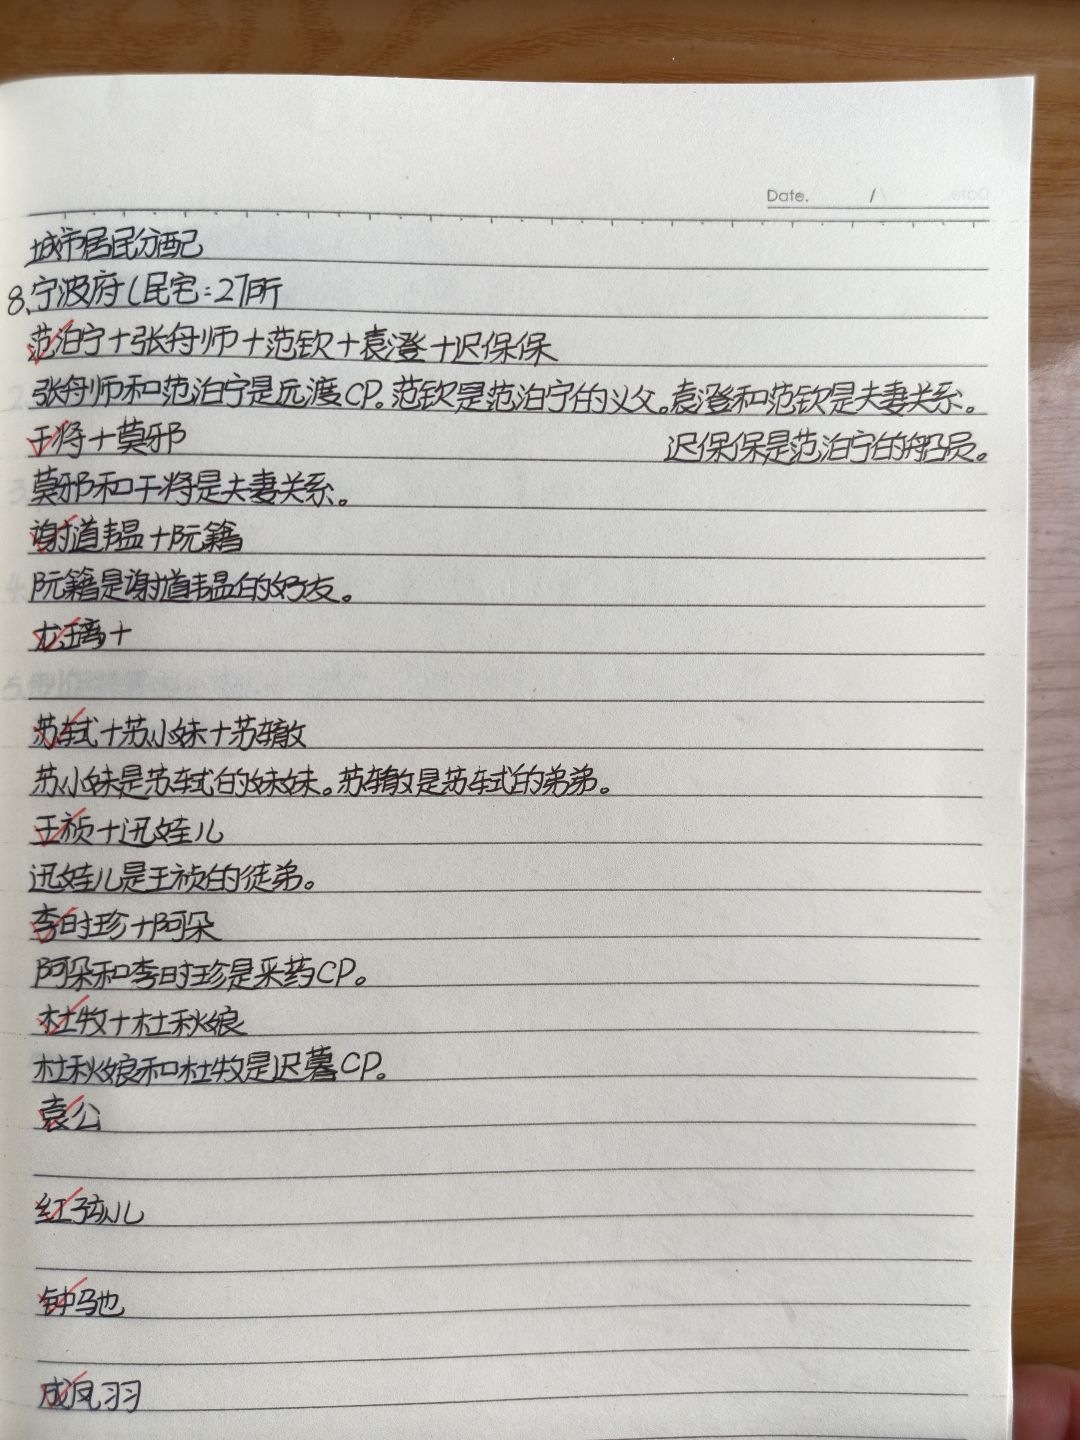 Date. /
城市居民分配
8、宁波府(民宅:27所
范泊宁+张舟师+范钦+袁澄+迟保保
张舟师和范泊宁是远渡CP。范钦是范泊宁的义父。袁澄和范钦是夫妻关系。
干将+莫邪
迟保保是范泊宁的船员。
莫邪和干将是夫妻关系。
谢道韫+阮籍
阮籍是谢道韫的好友。
龙璃+
苏轼+苏小妹+苏辙
苏小妹是苏轼的妹妹。苏辙是苏轼的弟弟。
王祯+迅娃儿
迅娃儿是王祯的徒弟。
李时珍+阿朵
阿朵和李时珍是采药CP。
杜牧+杜秋娘
杜秋娘和杜牧是迟暮CP。
袁公
红孩儿
钟驰
成凤羽